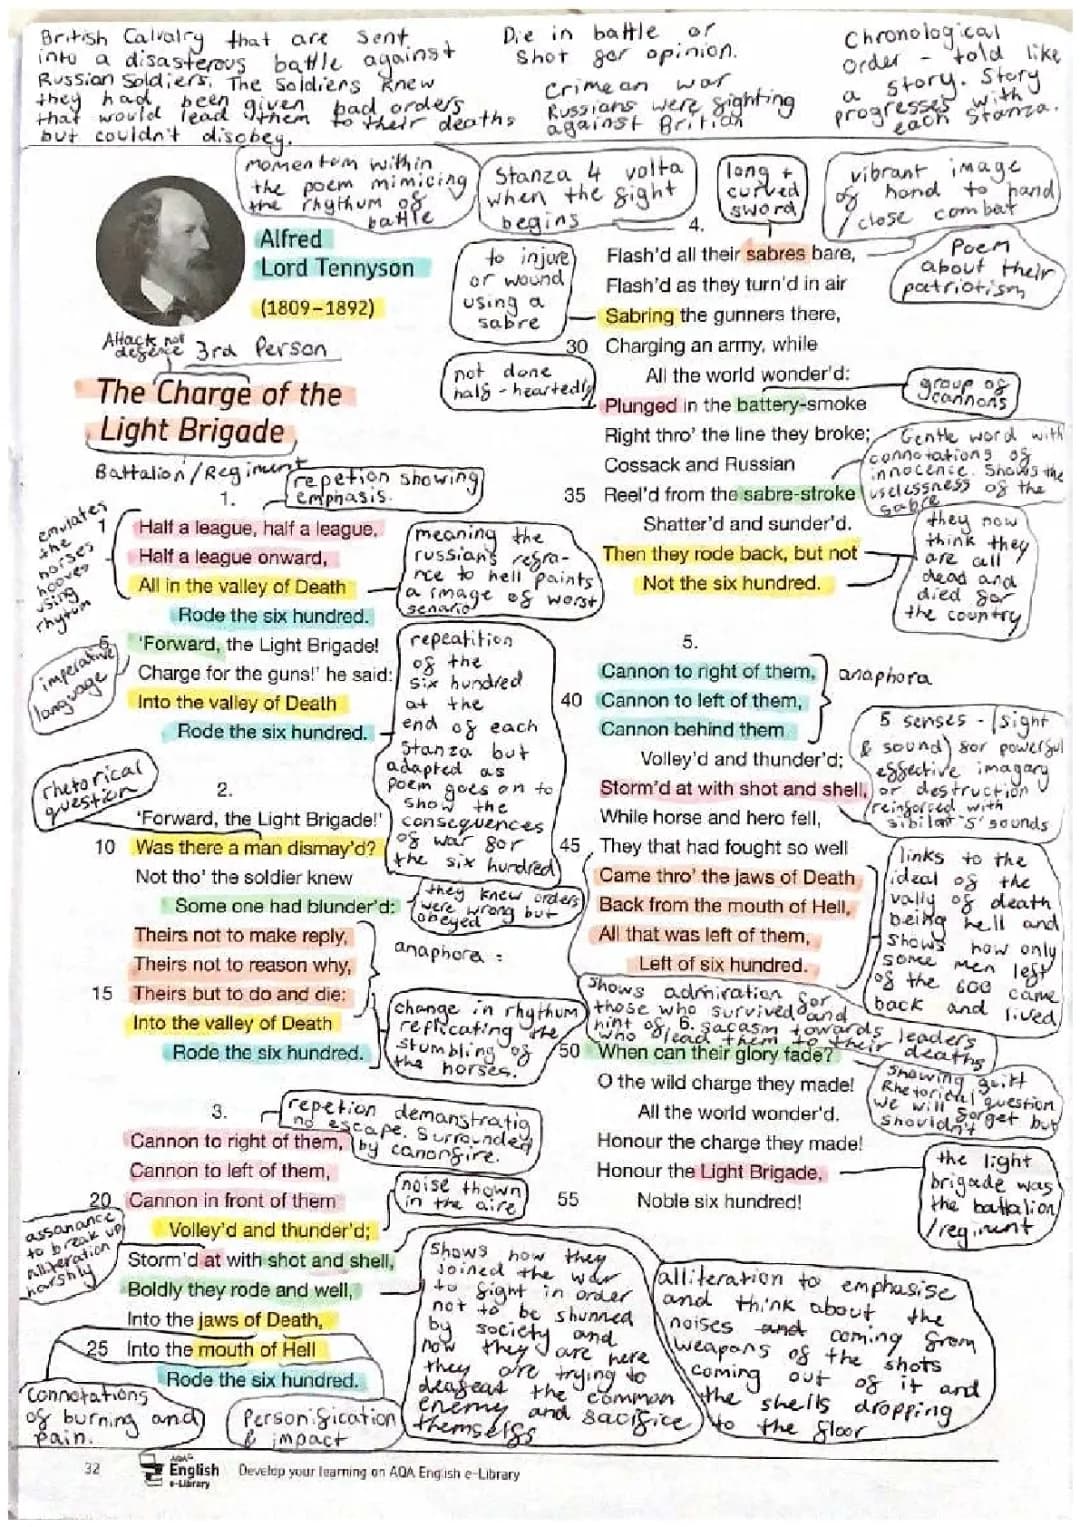 British Calvalry that are sent
into a disasterous battle against
Russian Soldiers. The Soldiers knew
they had been given bad orders
that would lead them to their deaths
but couldn't disobey.
Die in battle or
Shot for opinion.
Crimean war
Russians were fighting
against British
Chronological
order - told like
a story. Story
progresses with
each Stanza.
momentum within
the poem mimicing
the rhythum of
battle
Stanza 4 volta
when the fight
begins
long +
curved
sword
vibrant image
of hand to hand
/close combat
Poem
about their
patriotism
Alfred
Lord Tennyson
(1809–1892)
Attack not
defence
3rd Person
The Charge of the
Light Brigade
Battalion/Regiment
repetion showing
emphasis.
emulates
the
horses
hooves
using
rhytum
1.
1 Half a league, half a league,
Half a league onward,
All in the valley of Death
Rode the six hundred.
5 'Forward, the Light Brigade!
Charge for the guns!' he said:
Into the valley of Death
Rode the six hundred.
meaning the
russians refra-
nce to hell paints
a image of worst
senario
imperative
language
repeatition
of the
six hundred
at the
end of each
Stanza but
adapted as
poem goes on to
show the
consequences
of war for
the six hundred
rhetorical
question
2.
'Forward, the Light Brigade!'
10 Was there a man dismay'd?
Not tho' the soldier knew
Some one had blunder'd:
Theirs not to make reply,
Theirs not to reason why,
15 Theirs but to do and die:
Into the valley of Death
Rode the six hundred.
they knew orders
were wrong but
obeyed
anaphora :
change in rhythum
replicating the
stumbling of
the horses.
3.
Cannon to right of them,
Cannon to left of them,
20 Cannon in front of them
Volley'd and thunder'd;
Storm'd at with shot and shell,
Boldly they rode and well,
Into the jaws of Death,
25 Into the mouth of Hell
Rode the six hundred.
repetion demanstratig
no escape. Surrounded
by canonfire.
noise thown
in the aire
assanance
to break up
alliteration
harshly
Connotations
of burning and
pain.
Personification
& impact
shows how they
joined the war
to fight in order
not to be shunned
by society and
now they are here
they are trying to
deafeat the common
enemy and sacifice
themselfs
alliteration to emphasise
and think about the
noises and coming from
weapons of the shots
coming out of it and
the shells dropping
to the floor
4.
Flash'd all their sabres bare,
Flash'd as they turn'd in air
Sabring the gunners there,
30 Charging an army, while
All the world wonder'd:
Plunged in the battery-smoke
Right thro' the line they broke;
Cossack and Russian
35 Reel'd from the sabre-stroke
Shatter'd and sunder'd.
Then they rode back, but not
Not the six hundred.
to injure
or wound
using a
sabre
not done
half-heartedly
group of
cannons
Gentle word with
connotations of
innocence. Shows the
uselessness of the
sabre
they now
think they
are all
dead and
died for
the country
5.
Cannon to right of them,
40 Cannon to left of them,
Cannon behind them
Volley'd and thunder'd;
Storm'd at with shot and shell,
While horse and hero fell,
45 They that had fought so well
Came thro' the jaws of Death
Back from the mouth of Hell,
All that was left of them,
Left of six hundred.
anaphora
5 senses - (sight
& sound) for powerful
effective imagary
or destruction
/reinforced with
sibilant 's' sounds
links to the
ideal of the
vally of death
being hell and
shows how only
some men left
of the 600 came
back and lived
shows admiration for
those who survived and
hint of 6. sacasm towards leaders
who lead them to their deaths
50 When can their glory fade?
O the wild charge they made!
All the world wonder'd.
Honour the charge they made!
Honour the Light Brigade,
55 Noble six hundred!
showing guilt
Rhetorical question
we will forget but
shouldn't
the light
brigade was
the battalion
/regiment
32
AQA
English
e-Library
Develop your learning on AQA English e-Library